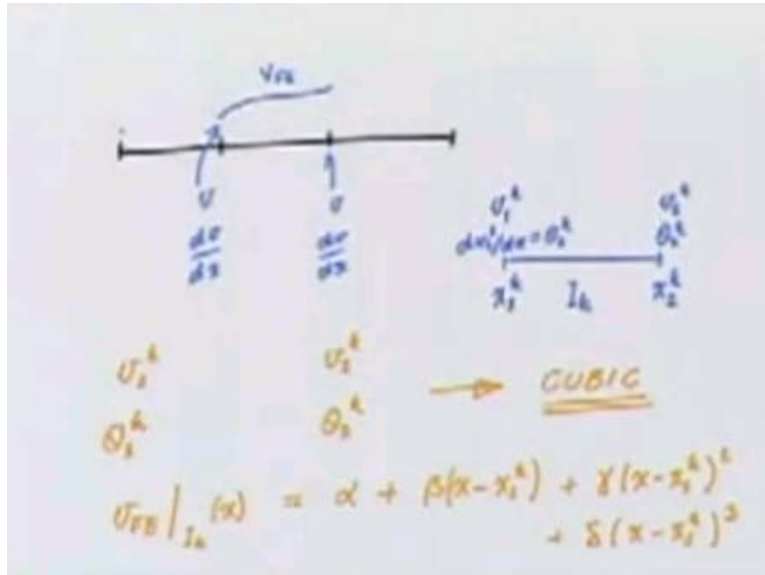 v_FE
v v
dv/dx dv/dx
v_1^k v_2^k
dv_1^k/dx = θ_1^k θ_2^k
x_1^k I_k x_2^k
v_1^k v_2^k → CUBIC
θ_1^k θ_2^k
v_FE|_{I_k}(x) = α + β(x-x_1^k) + γ(x-x_1^k)^2
+ δ(x-x_1^k)^3